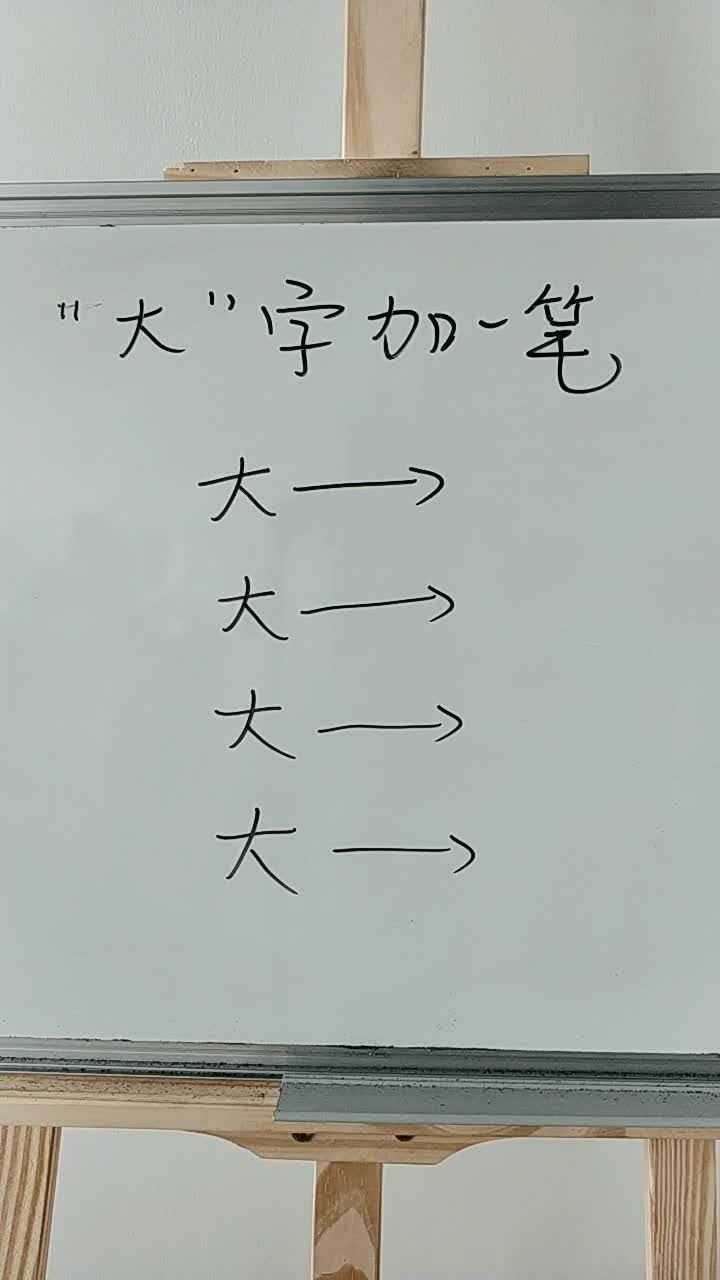 "大"字加一笔
大→
大→
大→
大→